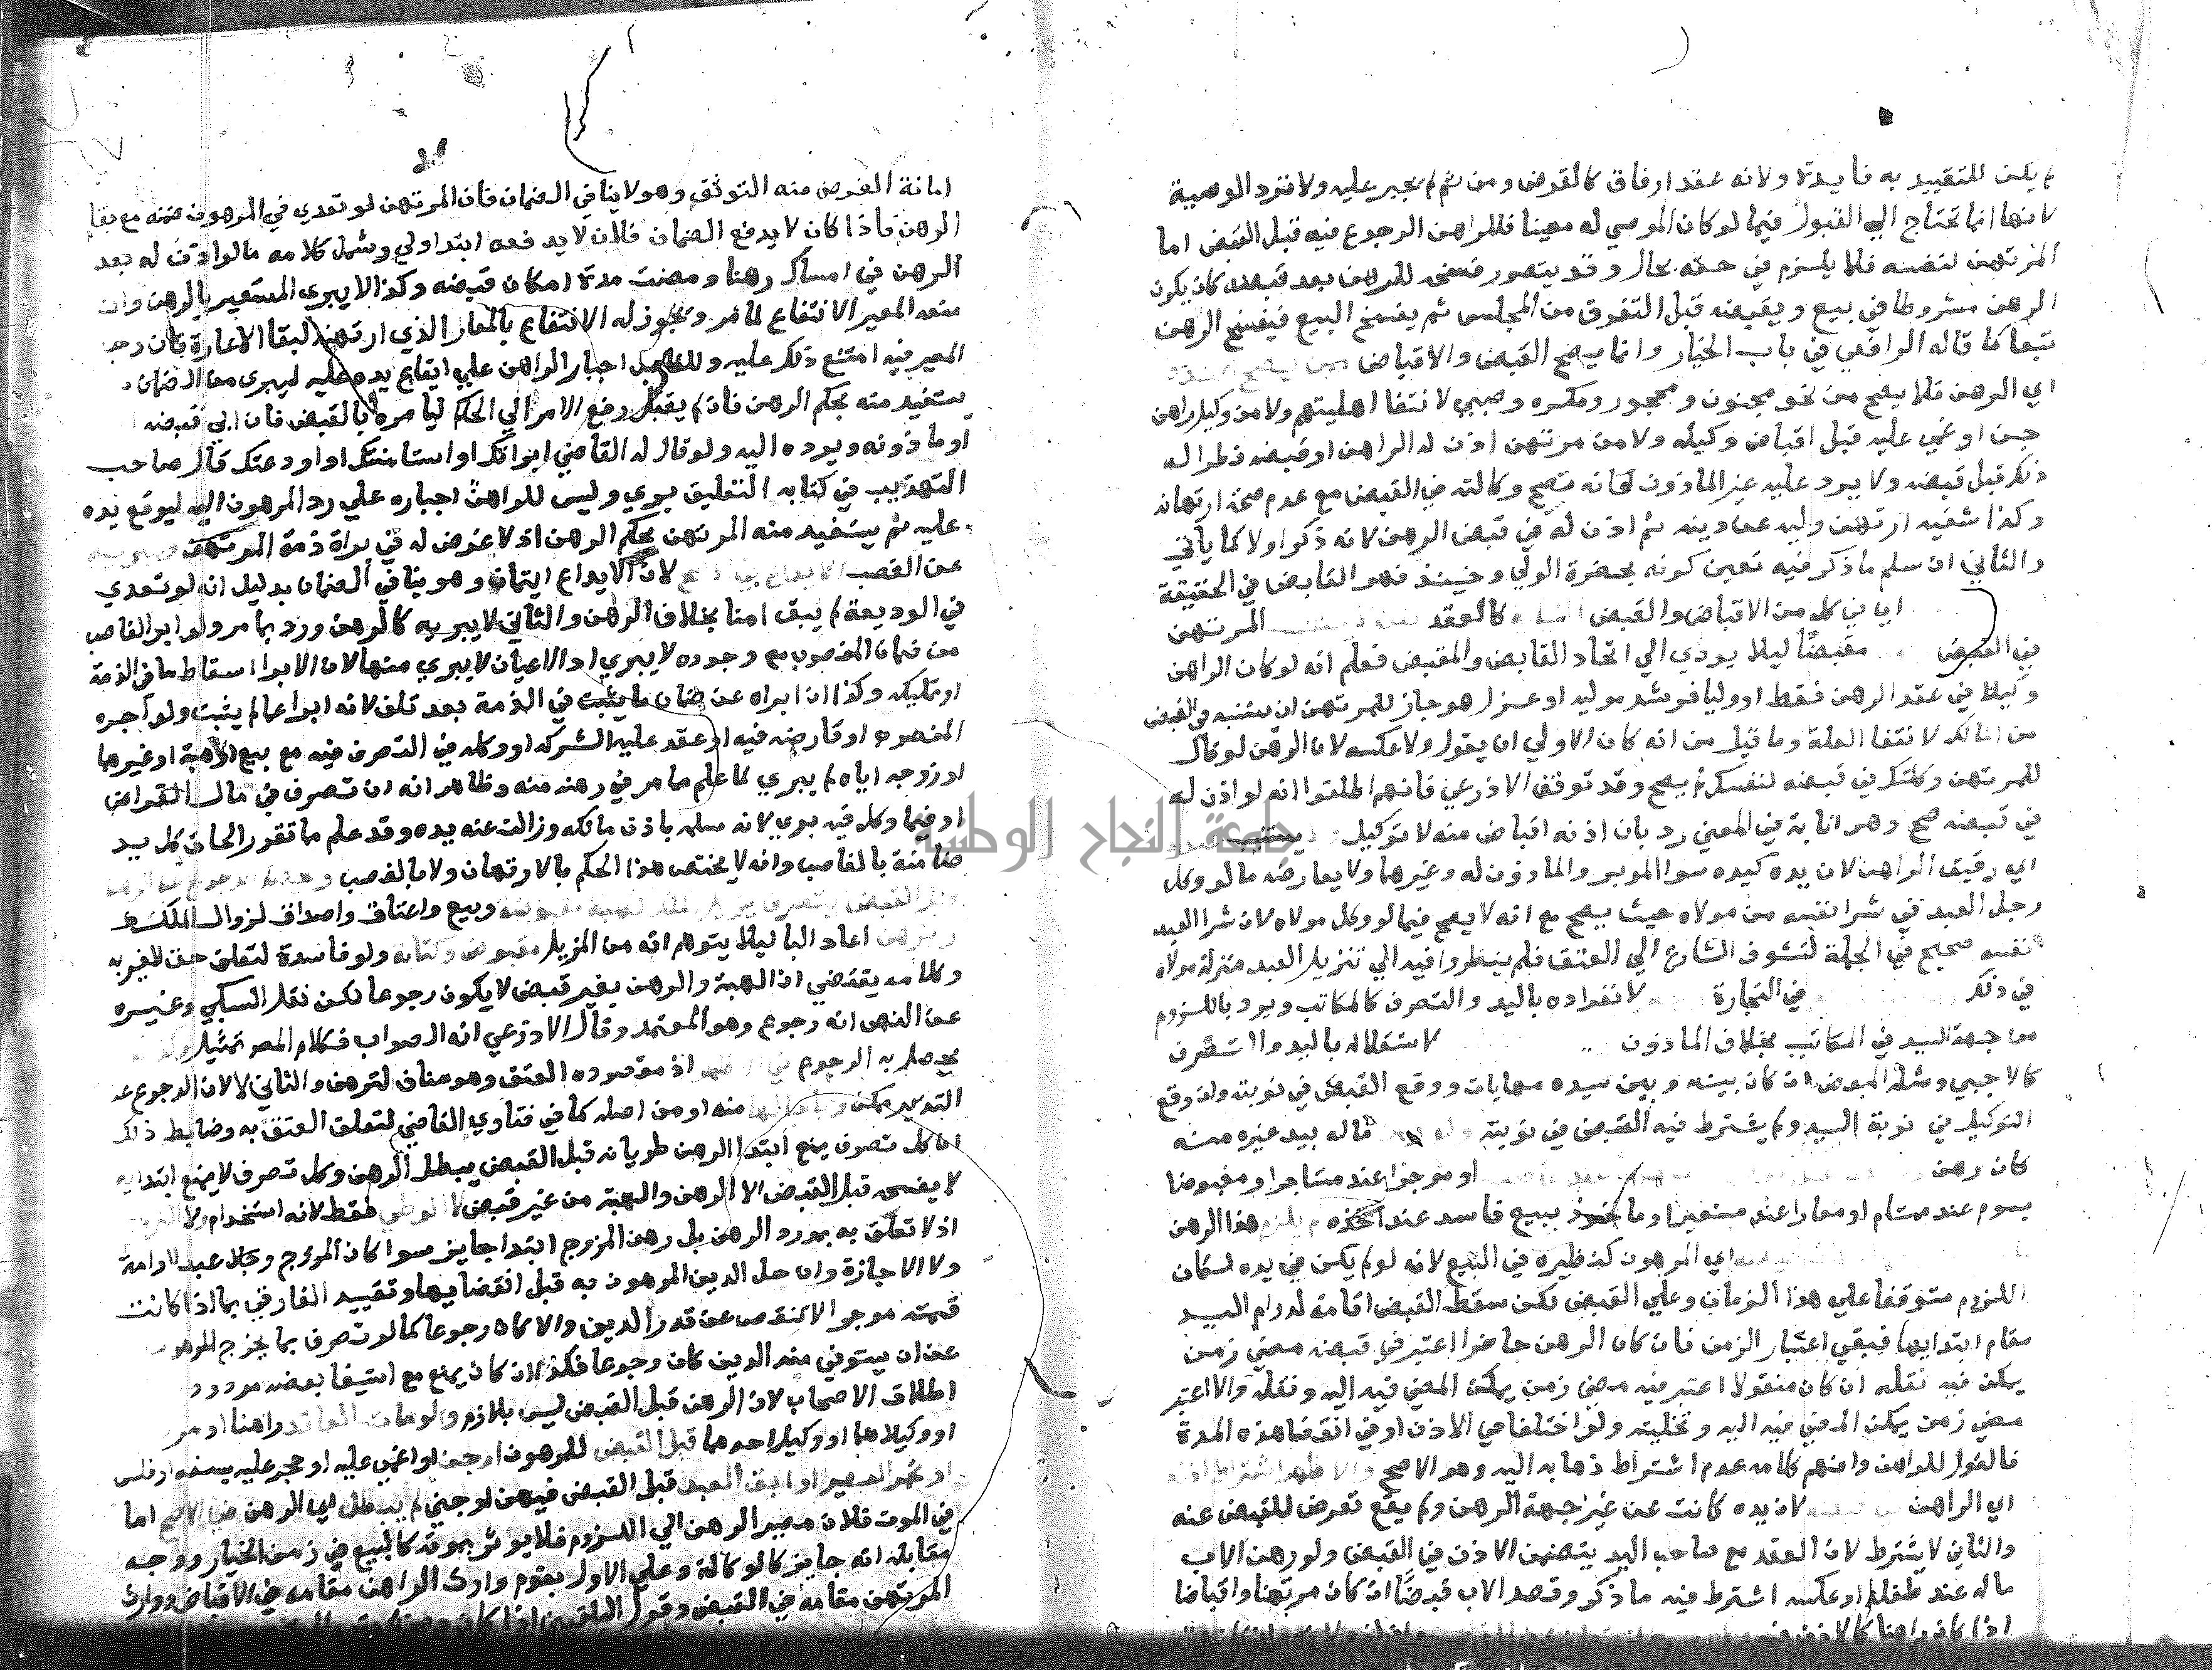 لم يكن للتقييد به فايدة ولانه عقد ارفاق كالقرض ومن ثم لم يجبر عليه ولا ترد الوصية
لانها انما تحتاج الي القبول فيما لو كان الموصي له معينا فللراهن الرجوع فيه قبل القبض اما
المرتهن لنفسه فلا يلزم في حقه بحال وقد يتصور فسخه للرهن بعد قبضه كان يكون
الرهن مشروطا في بيع ويقبضه قبل التفرق من المجلس ثم يفسخ البيع فيفسخ الرهن
تبعا كما قاله الرافعي في باب الخيار وانما يصح القبض والاقباض
اي الرهن فلا يصح من نحو مجنون ومحجور ومكره وصبي لانتفا اهليتهم ولا من وكيل راهن
جن او غمي عليه قبل اقباض وكيله ولا من مرتهن اذن له الراهن او قبضه فطرا له
ذلك قبل قبضه ولا يرد عليه غير الماذون فانه تصح وكالته في القبض مع عدم صحة ارتهانه
وكذا سفيه ارتهن وليه عن دينه ثم اذن له في قبض الرهن لانه ذكر اولا كما ياتي
والثاني ان سلم ما ذكر فيه تعين كونه بحضرة الولي وحينئذ فهو القابض في الحقيقة
اي في كل من الاقباض والقبض كالعقد المرتهن
في القبض مقبضا ليلا يودي الي اتحاد القابض والمقبض فعلم انه لو كان الراهن
وكيلا في عقد الرهن فقط او وليا فرشد موليه او عزل هو جاز للمرتهن ان يستنيبه في القبض
من المالك لانتفا العلة وما قيل من انه كان الاولي ان يقول ولا عكسه لان الرهن لو قال
للمرتهن وكلتك في قبضه لنفسك لم يصح وقد توقف الاذرعي فانهم اطلقوا انه لو اذن له
في قبضه صح وهو انابة في المعني رد بان اذنه اقباض منه لا توكيل يستنيب
اي رقيق الراهن لان يده كيده سوا المدبر والماذون له وغيرهما ولا يعارضه ما لو وكل
رجل العبد في شرا نفسه من مولاه حيث يصح مع انه لا يصح فيما لو وكل مولاه لان شرا العبد
نفسه صحيح في الجملة لتشوف الشارع الي العتق فلم ينظروا فيه الي تنزيل العبد منزلة مولاه
في ذلك في التجارة لانفراده باليد والتصرف كالمكاتب ويرد باللزوم
من جهة السيد في المكاتب بخلاف الماذون لاستقلاله باليد والتصرف
كالاجنبي ومثله المبعض ان كان بينه وبين سيده مهايات ووقع القبض في نوبته وان وقع
التوكيل في نوبة السيد ولم يشترط فيه القبض في نوبته ماله بيد غيره منه
كان رهن او موجرا عند مستاجر او مقبوضا
بسوم عند مستام او معارا عند مستعير او ماخوذ ببيع فاسد عند اخذه لم يلزم هذا الرهن
اي المرهون كنظيره في البيع لانه لو لم يكن في يده لكان
اللزوم متوقفا علي هذا الزمان وعلي القبض لكن سقط القبض اقامة لدوام اليد
مقام ابتدايها فبقي اعتبار الزمن فان كان الرهن حاضرا اعتبر في قبضه مضي زمن
يمكن فيه نقله ان كان منقولا اعتبر فيه مضي زمن يمكن المضي فيه اليه ونقله والا اعتبر
مضي زمن يمكن المضي فيه اليه وتخليته ولو اختلفا في الاذن او في انقضا هذه المدة
فالقول للراهن وافهم كلامه عدم اشتراط ذهابه اليه وهو الاصح والاظهر اشتراط اذنه
اي الراهن لان يده كانت عن غير جهة الرهن ولم يقع تعرض للقبض عنه
والثاني لا يشترط لان العقد مع صاحب اليد يتضمن الاذن في القبض ولو رهن الاب
ماله عند طفله او عكسه اشترط فيه ما ذكر وقصد الاب قبضا ان كان مرتهنا واقباضا
اذا كان راهنا كالاذن
امانة الغرض منه التوثق وهو لا ينافي الضمان فان المرتهن لو تعدي في المرهون ضمنه مع بقا
الرهن فاذا كان لا يدفع الضمان فلان لا يدفعه ابتدا ولي وشمل كلامه ما لو اذن له بعد
الرهن في امساكه رهنا ومضت مدة امكان قبضه وكذا لا يبري المستعير بالرهن وان
منعه المعير الانتفاع لما مر ويجوز له الانتفاع بالمعار الذي ارتهنه لبقا الاعارة فان رجع
المعير فيه امتنع ذلك عليه وللغاصب اجبار الراهن علي ايقاع يده عليه ليبري من الضمان
يستفيد منه بحكم الرهن فان لم يقبل رفع الامر الي الحاكم ليامره بالقبض فان ابي قبضه
او ماذونه ويرده اليه ولو قال له القاضي ابراتك او استامنتك او اودعتك قال صاحب
التهذيب في كتابه التعليق بري وليس للراهن اجباره علي رد المرهون اليه ليوقع يده
عليه ثم يستفيد منه المرتهن بحكم الرهن اذ لا غرض له في براة ذمة المرتهن
عن الغصب لان الايداع ايتمان وهو ينافي الضمان بدليل انه لو تعدي
في الوديعة لم يبق امنا بخلاف الرهن والثاني لا يبريه كالرهن ورد بما مر ولو ابرا الغاصب
من ضمان المغصوب مع وجوده لا يبري اذ الاعيان لا يبري منها لان الابرا اسقاط ما في الذمة
او تمليكه وكذا ان ابراه عن ضمان ما يثبت في الذمة بعد تلفه لانه ابرا عما لم يثبت ولو اجره
المغصوب او قارضه فيه او عقد عليه الشركه او وكله في التصرف فيه مع بيع او هبة او غيرهما
او زوجه اياه لم يبري لما علم ما مر في رهنه منه وظاهر انه ان تصرف في مال القراض
او فيما وكل فيه بري لانه سلمه باذن مالكه وزالت عنه يده وقد علم ما تقرر الحاق كل يد
ضامنة بالغاصب وانه لا يختص هذا الحكم بالارتهان ولا بالغصب
القبض وبيع واعتاق واصداق لزوال الملك
اعاد البا ليلا يتوهم انه من المزيل مقبوض وكتابة ولو فاسدة لتعلق حق الغير به
وكلامه يقتضي ان الهبة والرهن بغير قبض لا يكون رجوعا لكن نقل السبكي وغيره
عن النص انه رجوع وهو المعتمد وقال الاذرعي انه الصواب فكلام المص تمثيل
يحصل به الرجوع اذ مقصوده العتق وهو مناف للرهن والثاني لا لان الرجوع عن
التدبير ممكن منه او من اصله كما في فتاوي القاضي لتعلق العتق به وضابط ذلك
ان كل تصرف يمنع ابتدا الرهن طريانه قبل القبض يبطل الرهن وكل تصرف لا يمنع ابتدايه
لا يفسخه قبل القبض الا الرهن والهبة من غير قبض لا الوطي فقط لانه استخدام ولا
اذ لا تعلق به بمورد الرهن بل رهن المزوج ابتدا جايز سوا كان المزوج عبدا او امة
ولا الاجازة وان حل الدين المرهون به قبل انقضايها وتقييد الفارقي بما اذا كانت
قيمته موجرا لا تنقص عن قدر الدين والا كان رجوعا كما لو تصرف بما يخرج المرهون
عن ان يستوفي منه الدين كان رجوعا فكذا ان كان يمنع مع استيفا بعضه مردود
اطلاق الاصحاب لان الرهن قبل القبض ليس بلازم ولو مات العاقد راهنا او مر
او وكيلاهما او وكيل احدهما قبل القبض للمرهون او جن او اغمي عليه او حجر عليه بسفه او فلس
او تخمر العصير او ابق العبد قبل القبض فيهن او جني لم يبطل اي الرهن في الاصح اما
في الموت فلان مصير الرهن الي اللزوم فلا يوثر بموته كالبيع في زمن الخيار ووجه
مقابله انه جايز كالوكالة وعلي الاول يقوم وارث الراهن مقامه في الاقباض ووارث
المرتهن مقامه في القبض وقول البلقيني اذا كان
جامعة النجاح الوطنية